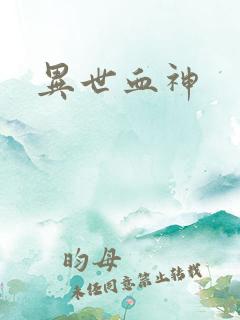 異世血神
昀母
未经同意禁止转载